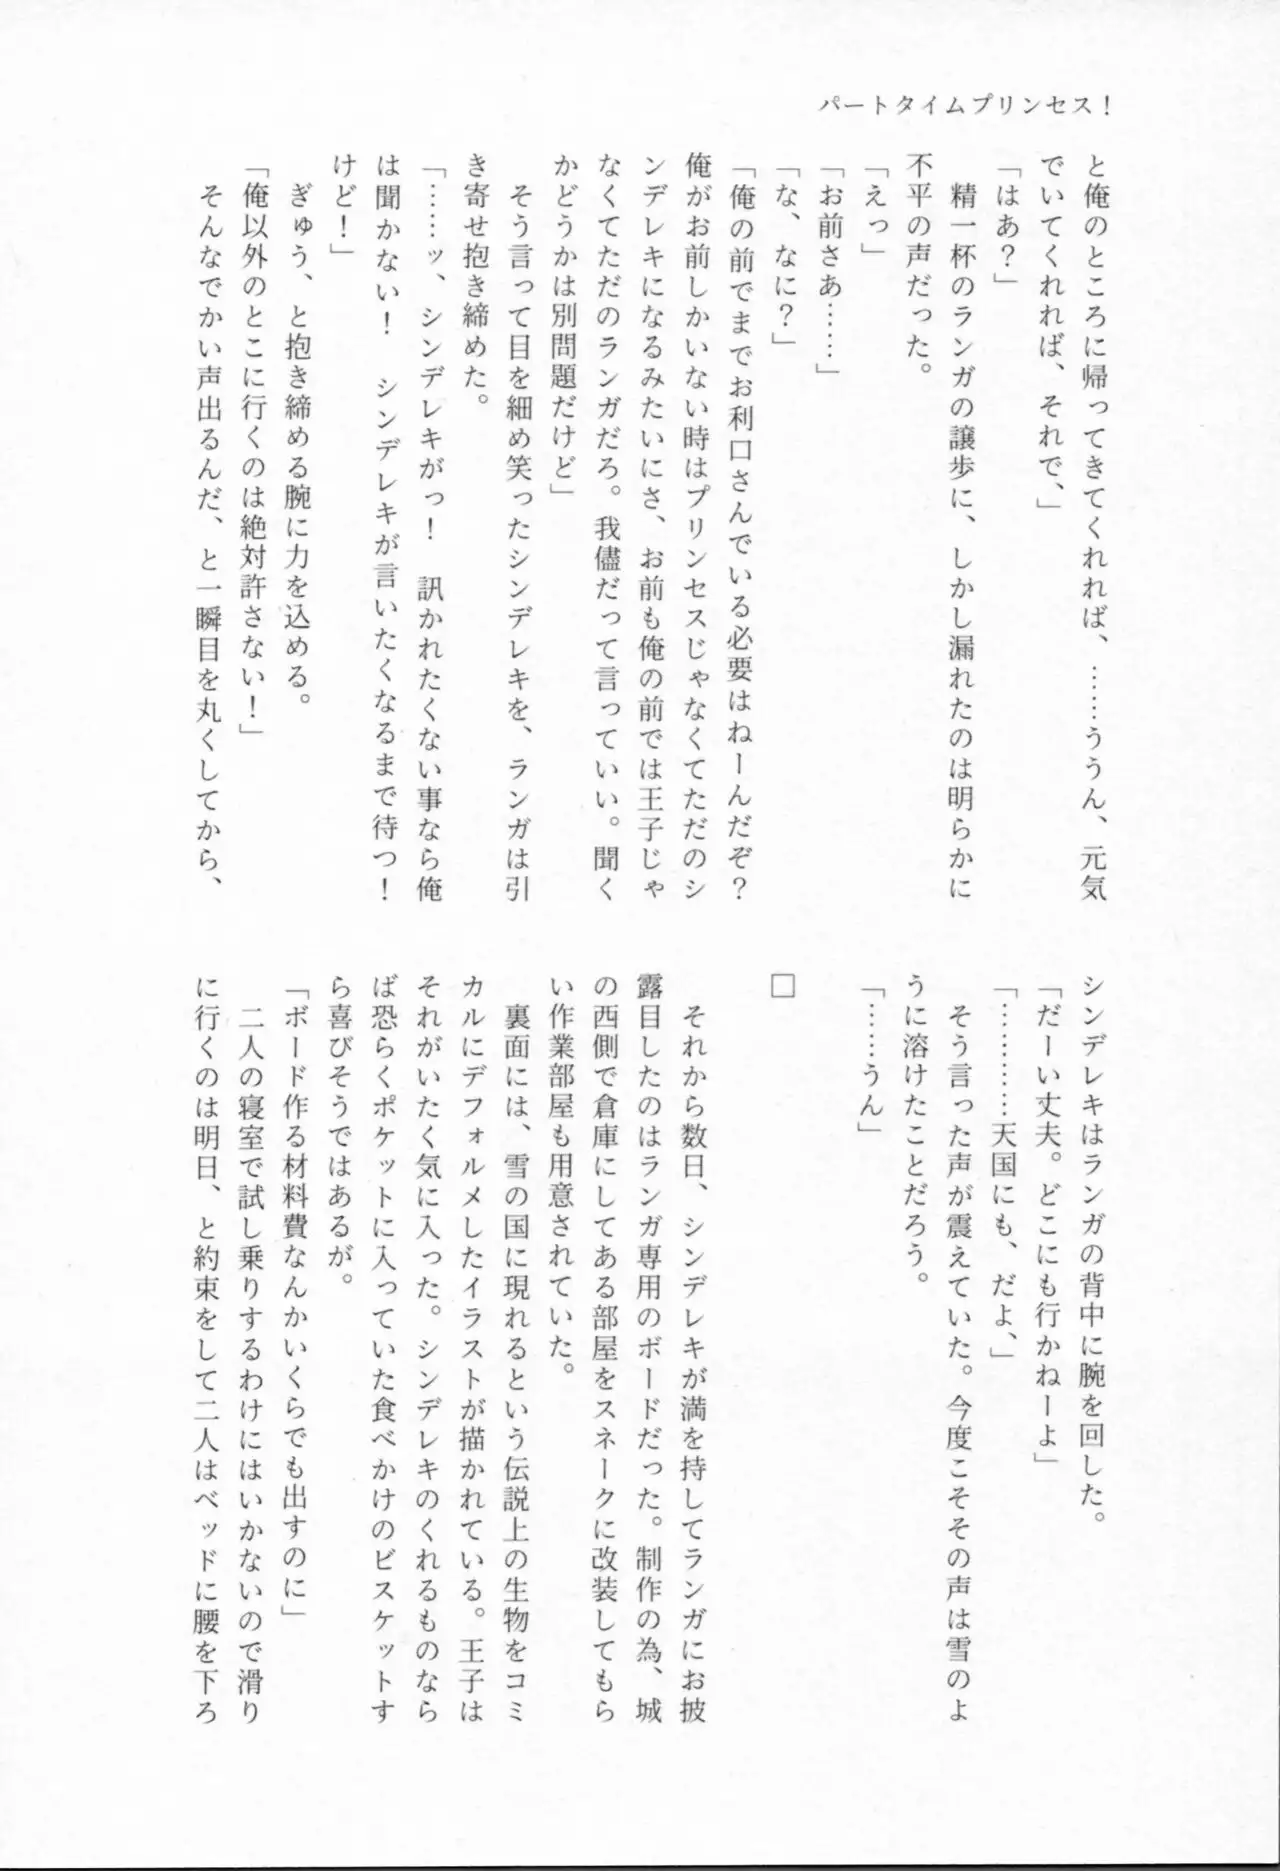 パートタイムプリンセス！
と俺のところに帰ってきてくれれば、……ううん、元気
でいてくれれば、それで、」
「はあ？」
　精一杯のランガの譲歩に、しかし漏れたのは明らかに
不平の声だった。
「えっ」
「お前さあ……」
「な、なに？」
「俺の前でまでお利口さんでいる必要はねーんだぞ？
俺がお前しかいない時はプリンセスじゃなくてただのシ
ンデレキになるみたいにさ、お前も俺の前では王子じゃ
なくてただのランガだろ。我儘だって言っていい。聞く
かどうかは別問題だけど」
　そう言って目を細め笑ったシンデレキを、ランガは引
き寄せ抱き締めた。
「……ッ、シンデレキがっ！　訊かれたくない事なら俺
は聞かない！　シンデレキが言いたくなるまで待つ！
けど！」
　ぎゅう、と抱き締める腕に力を込める。
「俺以外のとこに行くのは絶対許さない！」
　そんなでかい声出るんだ、と一瞬目を丸くしてから、
シンデレキはランガの背中に腕を回した。
「だーい丈夫。どこにも行かねーよ」
「…………天国にも、だよ、」
　そう言った声が震えていた。今度こそその声は雪のよ
うに溶けたことだろう。
「……うん」
□
　それから数日、シンデレキが満を持してランガにお披
露目したのはランガ専用のボードだった。制作の為、城
の西側で倉庫にしてある部屋をスネークに改装してもら
い作業部屋も用意されていた。
　裏面には、雪の国に現れるという伝説上の生物をコミ
カルにデフォルメしたイラストが描かれている。王子は
それがいたく気に入った。シンデレキのくれるものなら
ば恐らくポケットに入っていた食べかけのビスケットす
ら喜びそうではあるが。
「ボード作る材料費なんかいくらでも出すのに」
　二人の寝室で試し乗りするわけにはいかないので滑り
に行くのは明日、と約束をして二人はベッドに腰を下ろ